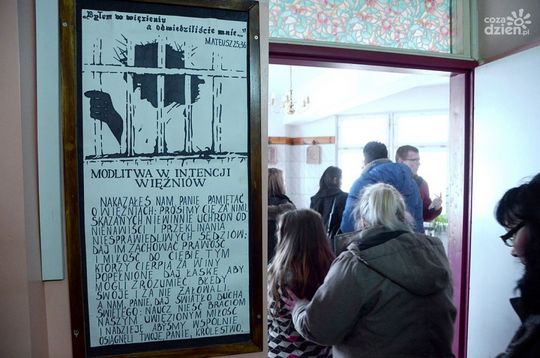 „Byłem w więzieniu
a odwiedziliście mnie..."
MATEUSZ 25:36
MODLITWA W INTENCJI
WIĘŹNIÓW
NAKAZAŁEŚ NAM, PANIE PAMIĘTAĆ,
O WIĘŹNIACH: PROSIMY CIĘ ZA NIMI
SKAZANYCH NIEWINNIE UCHROŃ OD
NIENAWIŚCI I PRZEKLINANIA
NIESPRAWIEDLIWYCH SĘDZIÓW;
DAJ IM ZACHOWAĆ PRAWOŚĆ
I MIŁOŚĆ DO CIEBIE. TYM
KTÓRZY CIERPIĄ ZA WINY
POPEŁNIONE DAJ ŁASKĘ ABY
MOGLI ZROZUMIEĆ BŁĘDY
SWOJE I ZA NIE ŻAŁOWALI
A NAM, PANIE, DAJ ŚWIATŁO DUCHA
ŚWIĘTEGO: NAUCZ NIEŚĆ BRACIOM
NASZYM UWIĘZIONYM MIŁOŚĆ
I NADZIEJĘ ABYŚMY WSPÓLNIE
OSIĄGNĘLI TWOJE, PANIE, KRÓLESTWO.
coza
dzień.pl